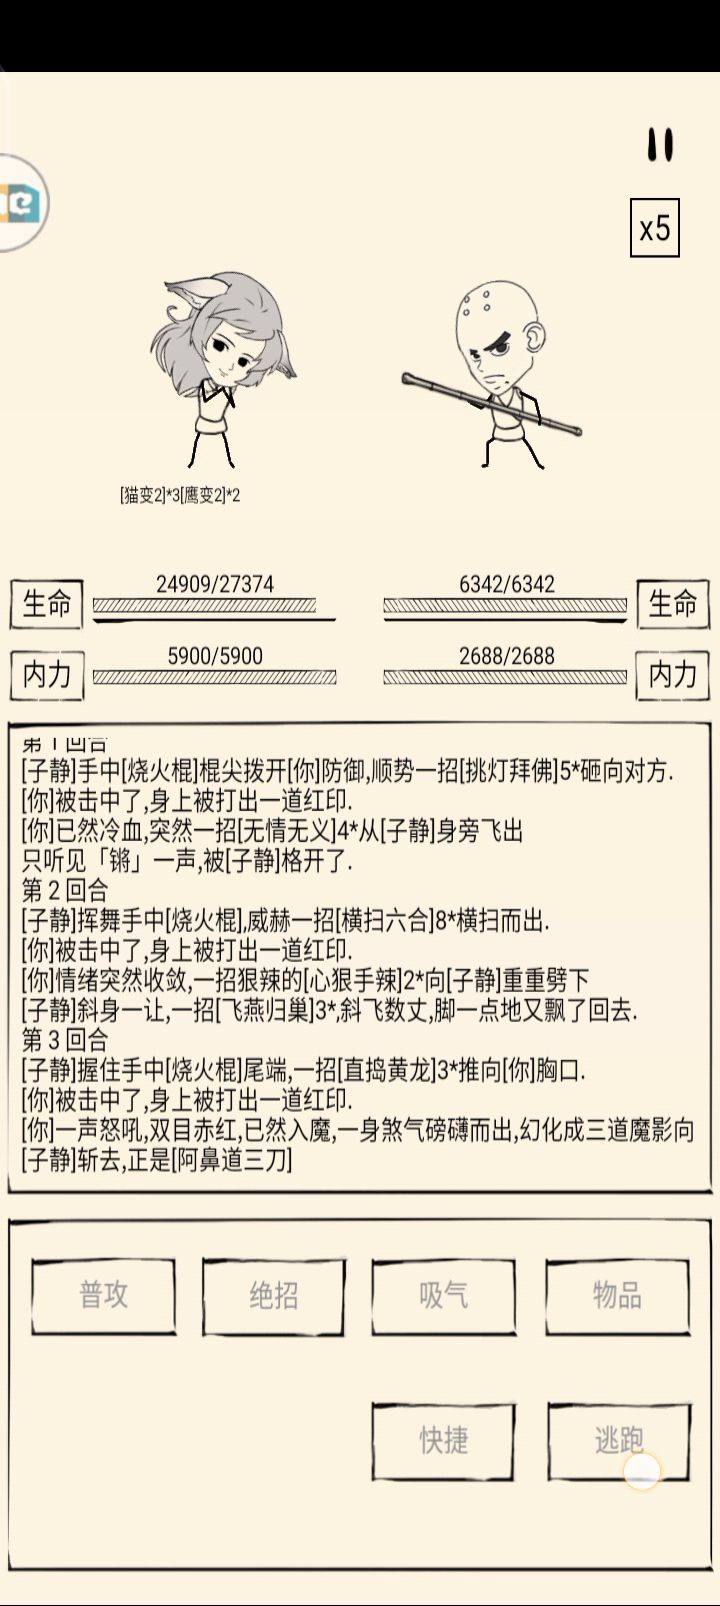 x5
[猫变2]*3[鹰变2]*2
生命 24909/27374 6342/6342 生命
内力 5900/5900 2688/2688 内力
第1回合
[子静]手中[烧火棍]棍尖拨开[你]防御,顺势一招[挑灯拜佛]5*砸向对方.
[你]被击中了,身上被打出一道红印.
[你]已然冷血,突然一招[无情无义]4*从[子静]身旁飞出
只听见「锵」一声,被[子静]格开了.
第2回合
[子静]挥舞手中[烧火棍],威赫一招[横扫六合]8*横扫而出.
[你]被击中了,身上被打出一道红印.
[你]情绪突然收敛,一招狠辣的[心狠手辣]2*向[子静]重重劈下
[子静]斜身一让,一招[飞燕归巢]3*,斜飞数丈,脚一点地又飘了回去.
第3回合
[子静]握住手中[烧火棍]尾端,一招[直捣黄龙]3*推向[你]胸口.
[你]被击中了,身上被打出一道红印.
[你]一声怒吼,双目赤红,已然入魔,一身煞气磅礴而出,幻化成三道魔影向
[子静]斩去,正是[阿鼻道三刀]
普攻 绝招 吸气 物品
快捷 逃跑